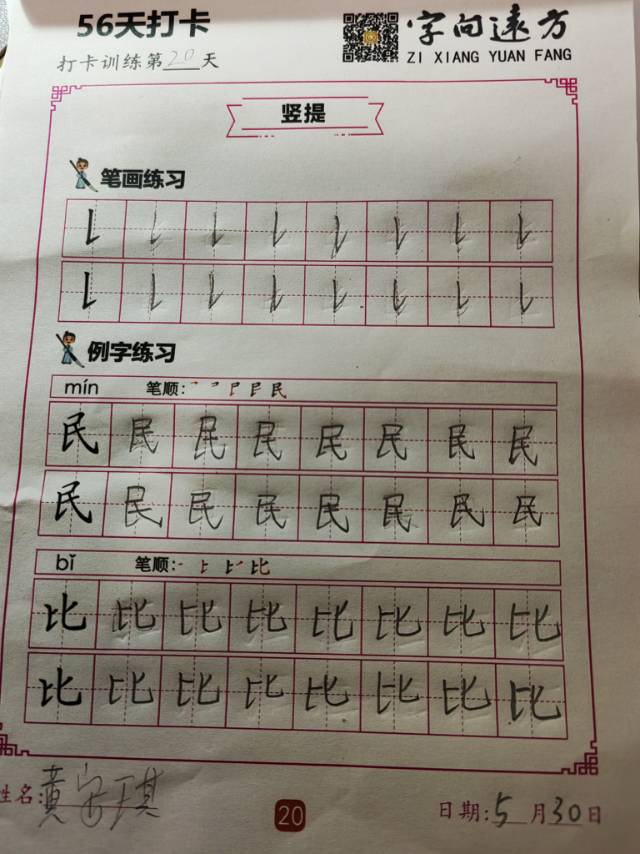 56天打卡
字向遠方
打卡训练第20天
ZI XIANG YUAN FANG
竖提
笔画练习
例字练习
mín 笔顺:
民 民 民 民 民 民 民 民
民 民 民 民 民 民 民 民
bǐ 笔顺:
比 比 比 比 比 比 比 比
比 比 比 比 比 比 比 比
姓名:黄安琪
20
日期:5月30日